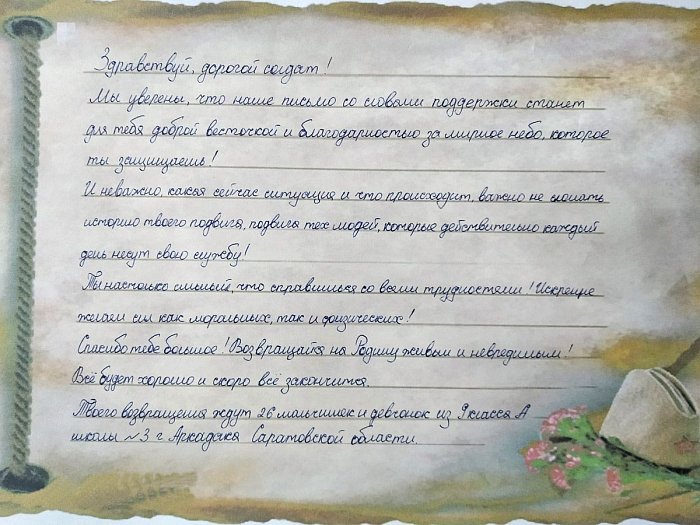 Здравствуй, дорогой солдат!
Мы уверены, что наше письмо со словами поддержки станет
для тебя доброй весточкой и благодарностью за мирное небо, которое
ты защищаешь!
И неважно, какая сейчас ситуация и что происходит, важно не сломать
историю твоего подвига, подвига тех людей, которые действительно каждый
день несут свою службу!
Ты настолько сильный, что справишься со всеми трудностями! Искренне
желаем сил как моральных, так и физических!
Спасибо тебе большое! Возвращайся на Родину живым и невредимым!
Всё будет хорошо и скоро всё закончится.
Твоего возвращения ждут 26 мальчишек и девчонок из 9 класса А
школы №3 г. Аркадака Саратовской области.